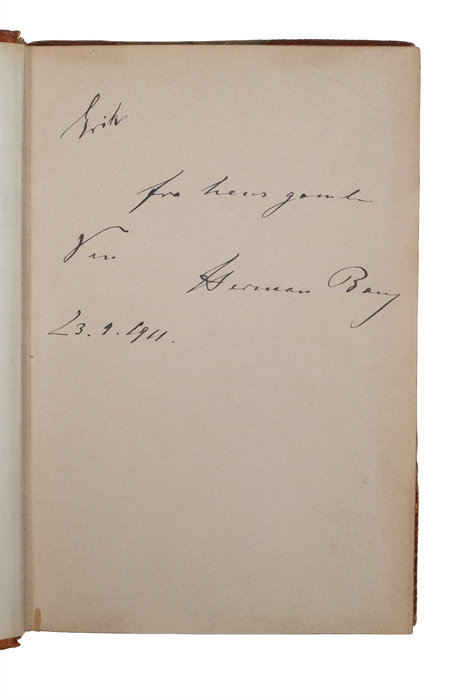 Erik
fra hans gamle
Ven
Herman Bang
23.9.1911.